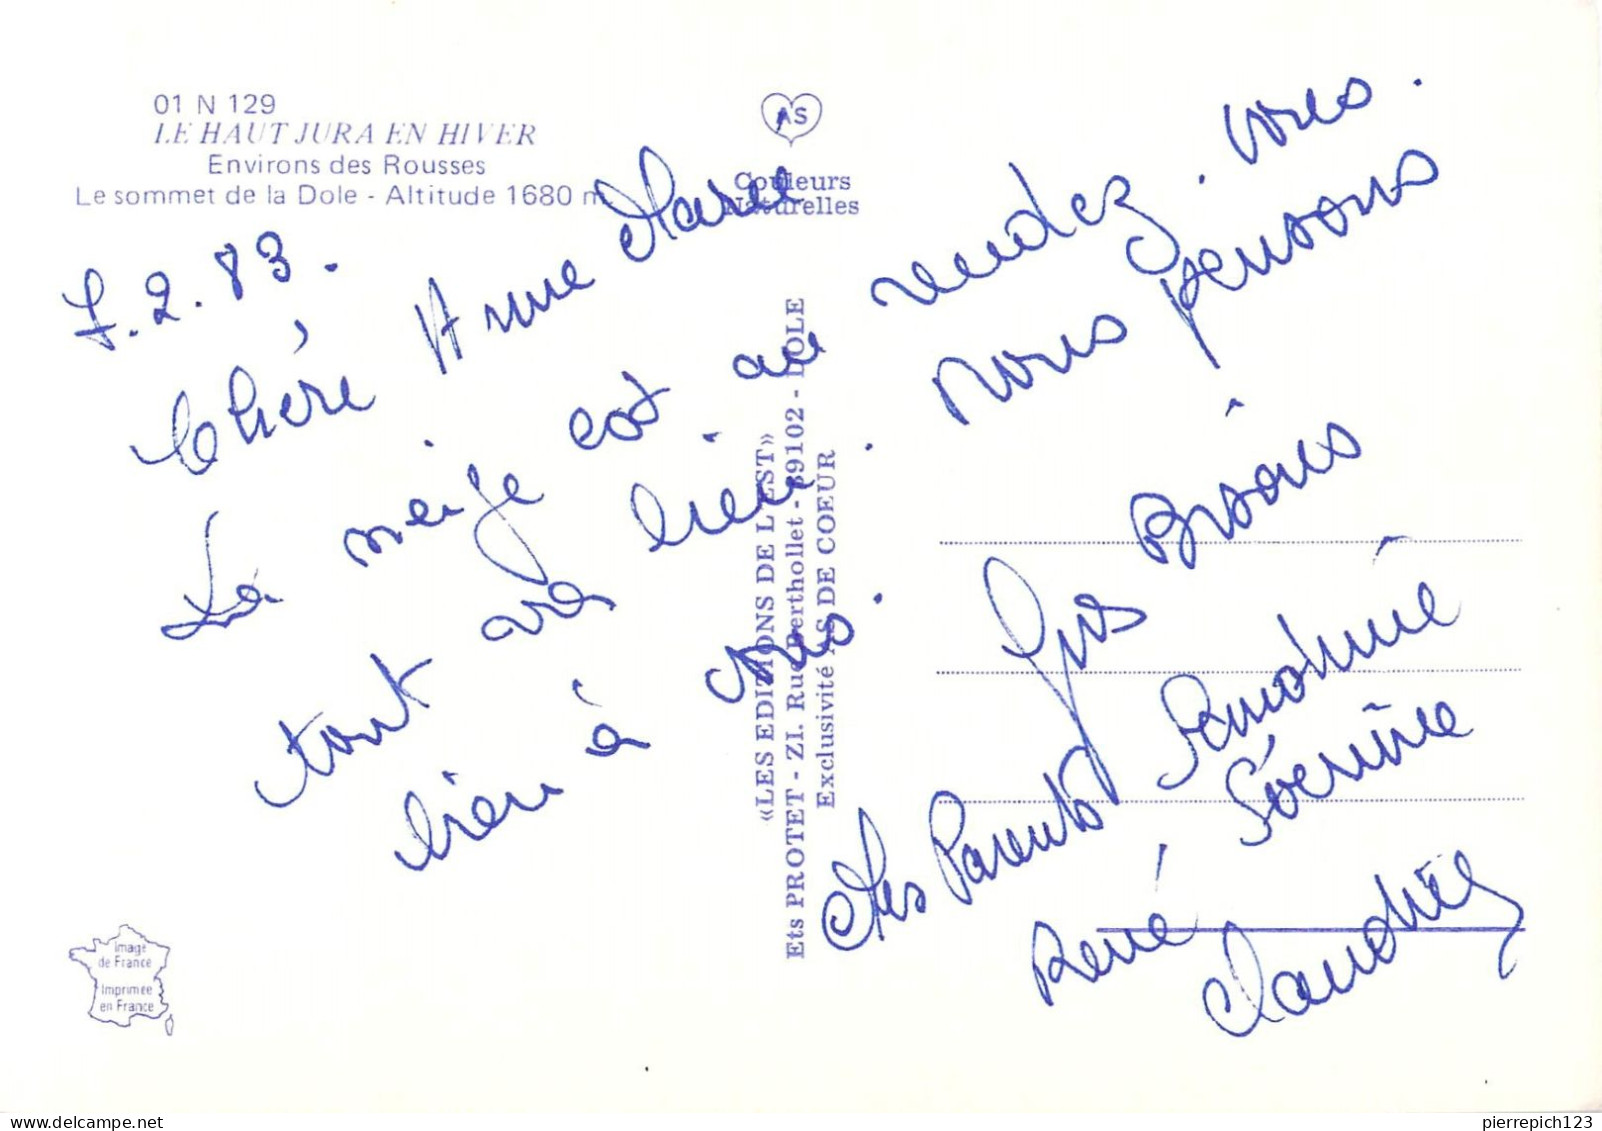 01 N 129
LE HAUT JURA EN HIVER
Environs des Rousses
Le sommet de la Dole - Altitude 1680 m.
AS
Couleurs
Naturelles
7.2.83.
Chère Anne Marie
La neige est au rendez-vous.
tout va bien. Nous pensons
bien à vous.
Gros Bisous
Mes Parents Sandrine
Séverine
René
«LES EDITIONS DE L'EST»
Ets PROTET - ZI. Rue Berthollet - 39102 - DOLE
Exclusivité AS DE COEUR
Image
de France
Imprimée
en France
pierrepich123